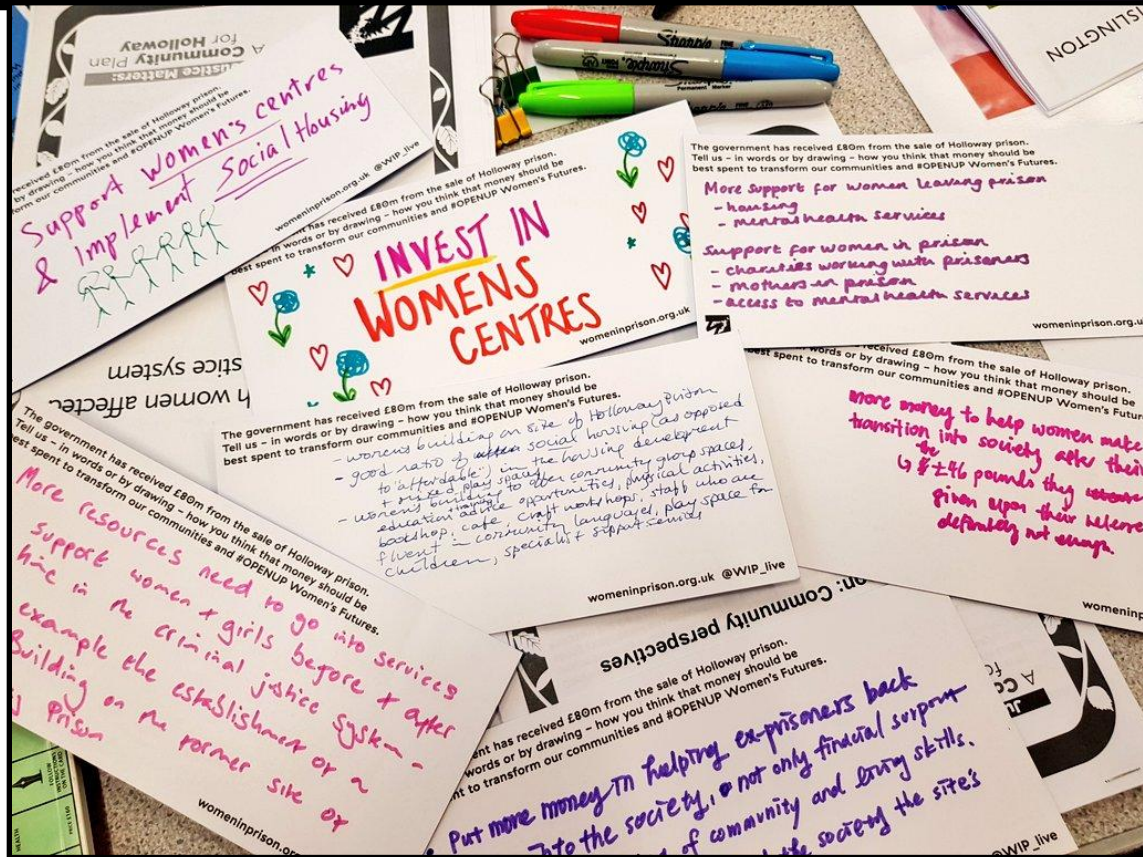 A Community Plan
for Holloway
Justice Matters:
received £80m from the sale of Holloway prison.
by drawing – how you think that money should be
form our communities and #OPENUP Women's Futures.
Support women's centres
& implement Social Housing
womeninprison.org.uk @WIP_live
Sharpie
Sharpie
Permanent Marker
ISLINGTON
has received £80m from the sale of Holloway prison.
in words or by drawing – how you think that money should be
best spent to transform our communities and #OPENUP Women's Futures.
INVEST IN
WOMENS
CENTRES
womeninprison.org.uk
The government has received £80m from the sale of Holloway prison.
Tell us – in words or by drawing – how you think that money should be
best spent to transform our communities and #OPENUP Women's Futures.
More support for women leaving prison
- housing
- mental health services
Support for women in prison
- charities working with prisoners
- mothers in prison
- access to mental health services
womeninprison.org.u
h women affected
stice system
The government has received £80m from the sale of Holloway prison.
Tell us – in words or by drawing – how you think that money should be
best spent to transform our communities and #OPENUP Women's Futures.
- womens building on site of Holloway Prison
- good ratio of social housing (as opposed
to 'affordable') in the housing development
+ mixed play space
- women's building to offer community group spaces,
education advice + training opportunities, physical activities,
bookshop, cafe, craft workshops, staff who are
fluent in community languages, play space for
children, specialist support services
womeninprison.org.uk @WIP_live
received £80m from the sale of Holloway prison.
words or by drawing – how you think that money should be
est spent to transform our communities and #OPENUP Women's Futur
more money to help women make
transition into society after their
the £46 pounds they
given upon their release
definitely not enough.
womeninp
The government has received £80m from the sale of Holloway prison.
Tell us – in words or by drawing – how you think that money should be
best spent to transform our communities and #OPENUP Women's Futures.
More resources need to go into services
support women + girls before + after
time in the criminal justice system -
example the establishment of a
Building on the former site of
Prison
womeninprison.org
on: Community perspectives
ent has received £80m from the sale of Holloway prison.
words or by drawing – how you think that money should be
nt to transform our communities and #OPENUP Women's Futures.
Put more money in helping ex-prisoners back
into the society, not only financial support
of community and living skills.
the society the site's
@WIP_live
A Co
fo
Ju
FOLLOW
INSTRUCTIONS
ON THE CARD
PRICE £160
HEALTH